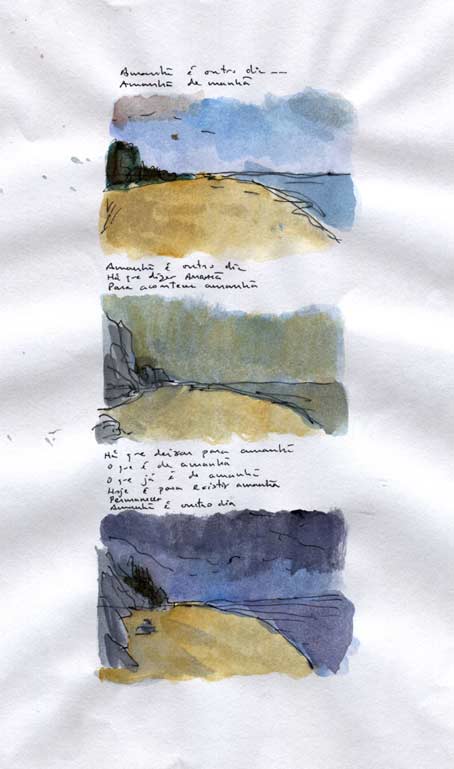 Amanhã é outro dia ---
Amanhã de manhã
Amanhã é outro dia
Há que dizer Amanhã
Para acontecer amanhã
Há que deixar para amanhã
O que é de amanhã
O que já é de amanhã
Hoje é para Existir amanhã
Permanecer
Amanhã é outro dia